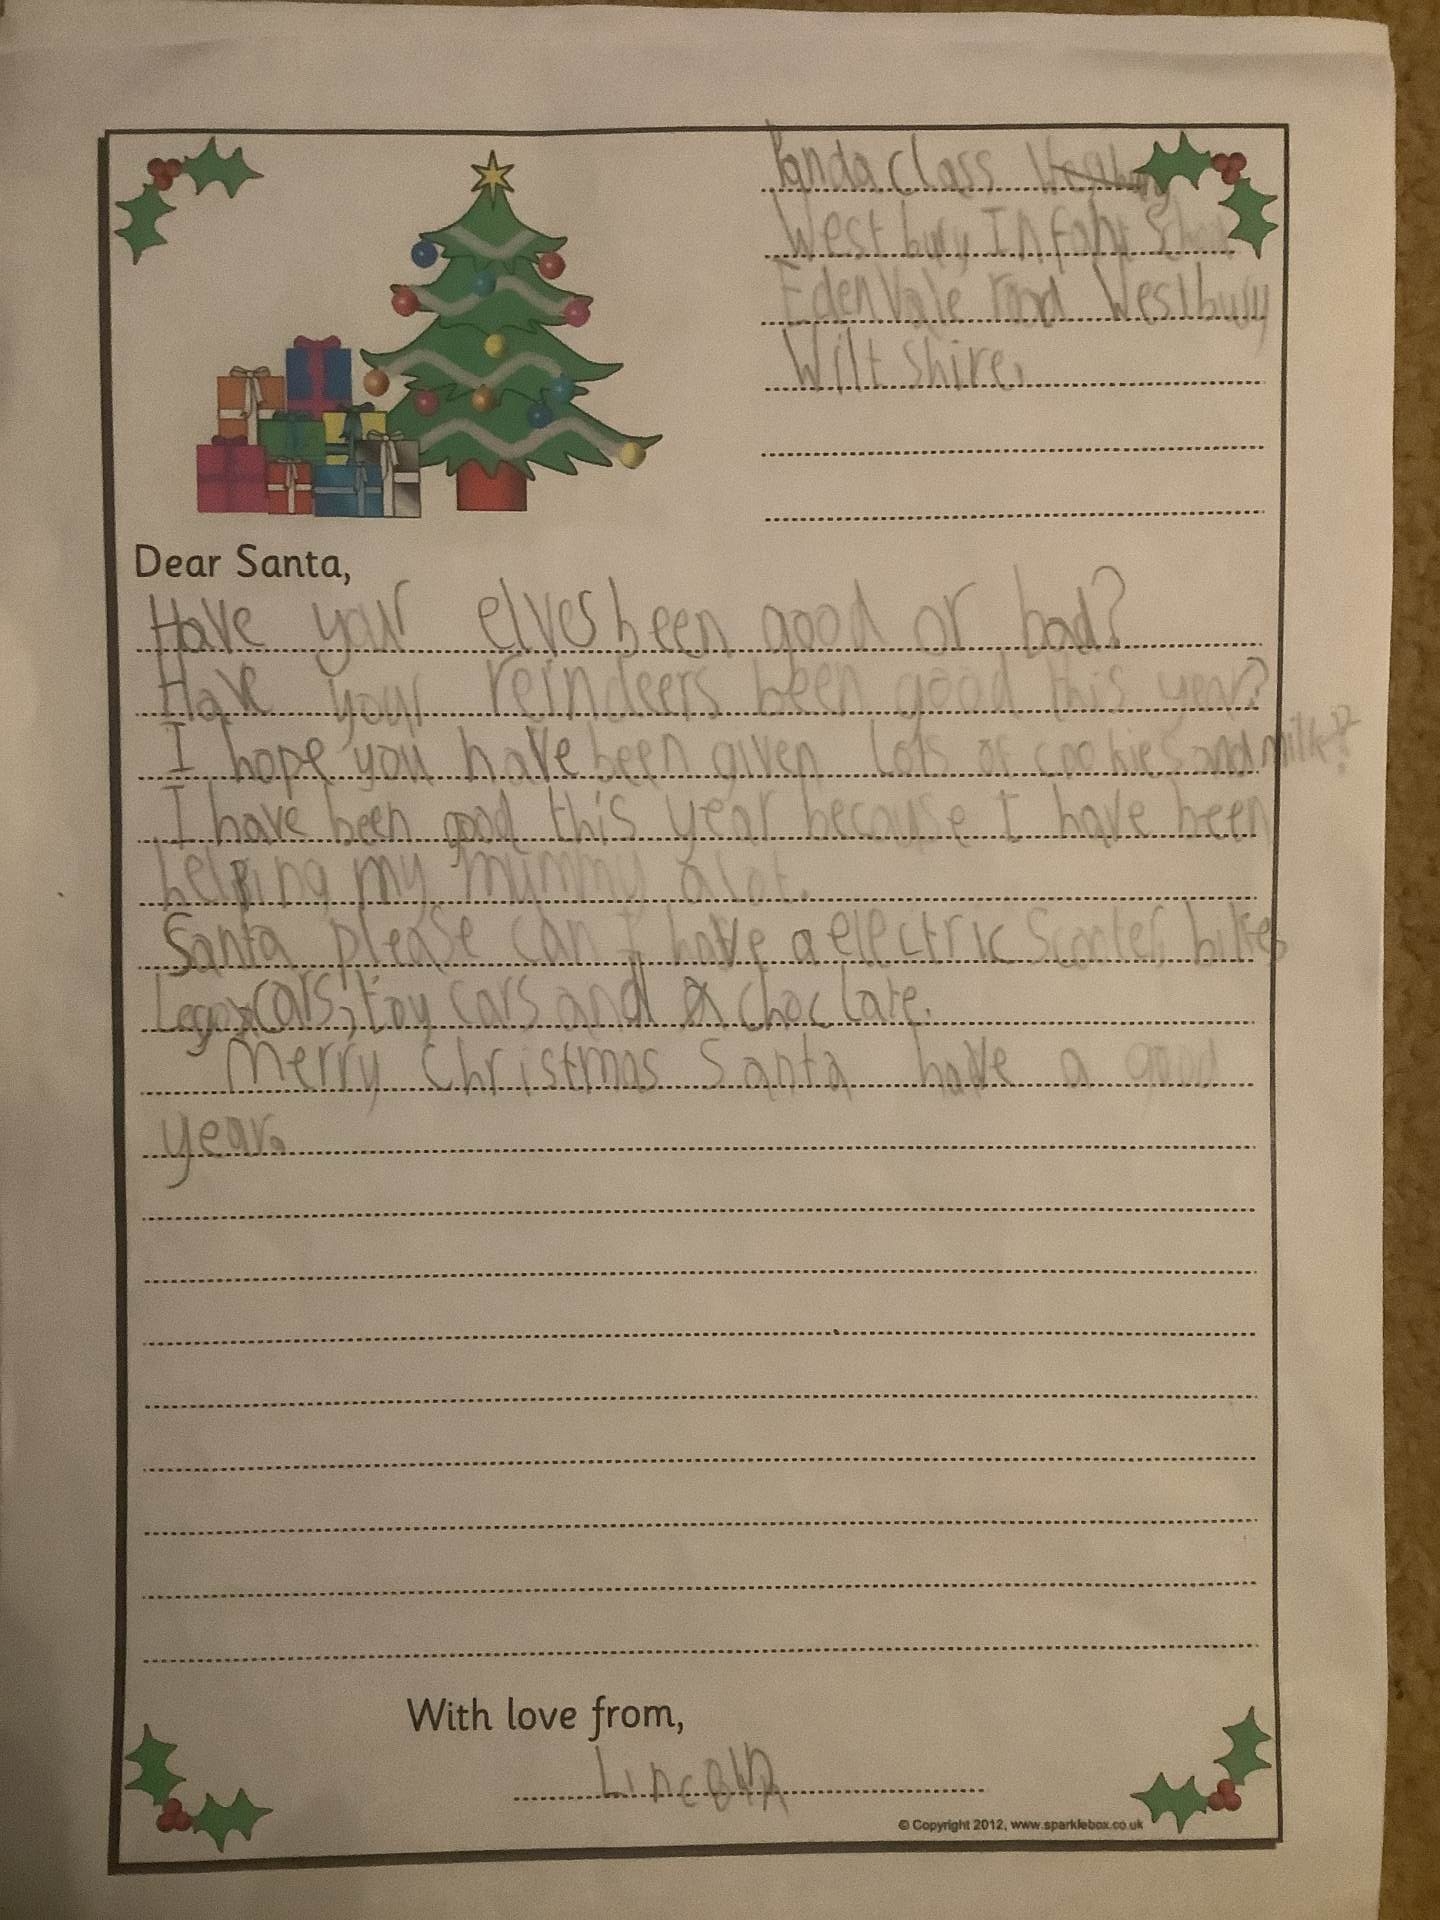 Panda class
Westbury Infant School
Eden Vale road Westbury
Wiltshire.
Dear Santa,
Have your elves been good or bad?
Have your reindeers been good this year?
I hope you have been given lots of cookies and milk?
I have been good this year because I have been
helping my mummy alot.
Santa please can I have a electric scooter, bike,
Lego cars, toy cars and choclate.
Merry christmas Santa have a good
year.
With love from,
Lincoln
© Copyright 2012, www.sparklebox.co.uk